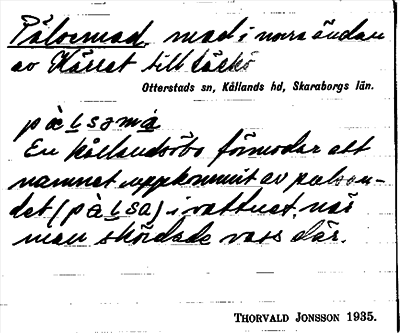 Pålsemad, mad i norra ändan
av Kärret till Läckö
Otterstads sn, Kållands hd, Skaraborgs län.
på̀lsəmá
En kållandsöbo förmodar att
namnet uppkommit av pulsan-
det (på̀lsa) i vattnet, när
man skördade vass där.
Thorvald Jonsson 1935.